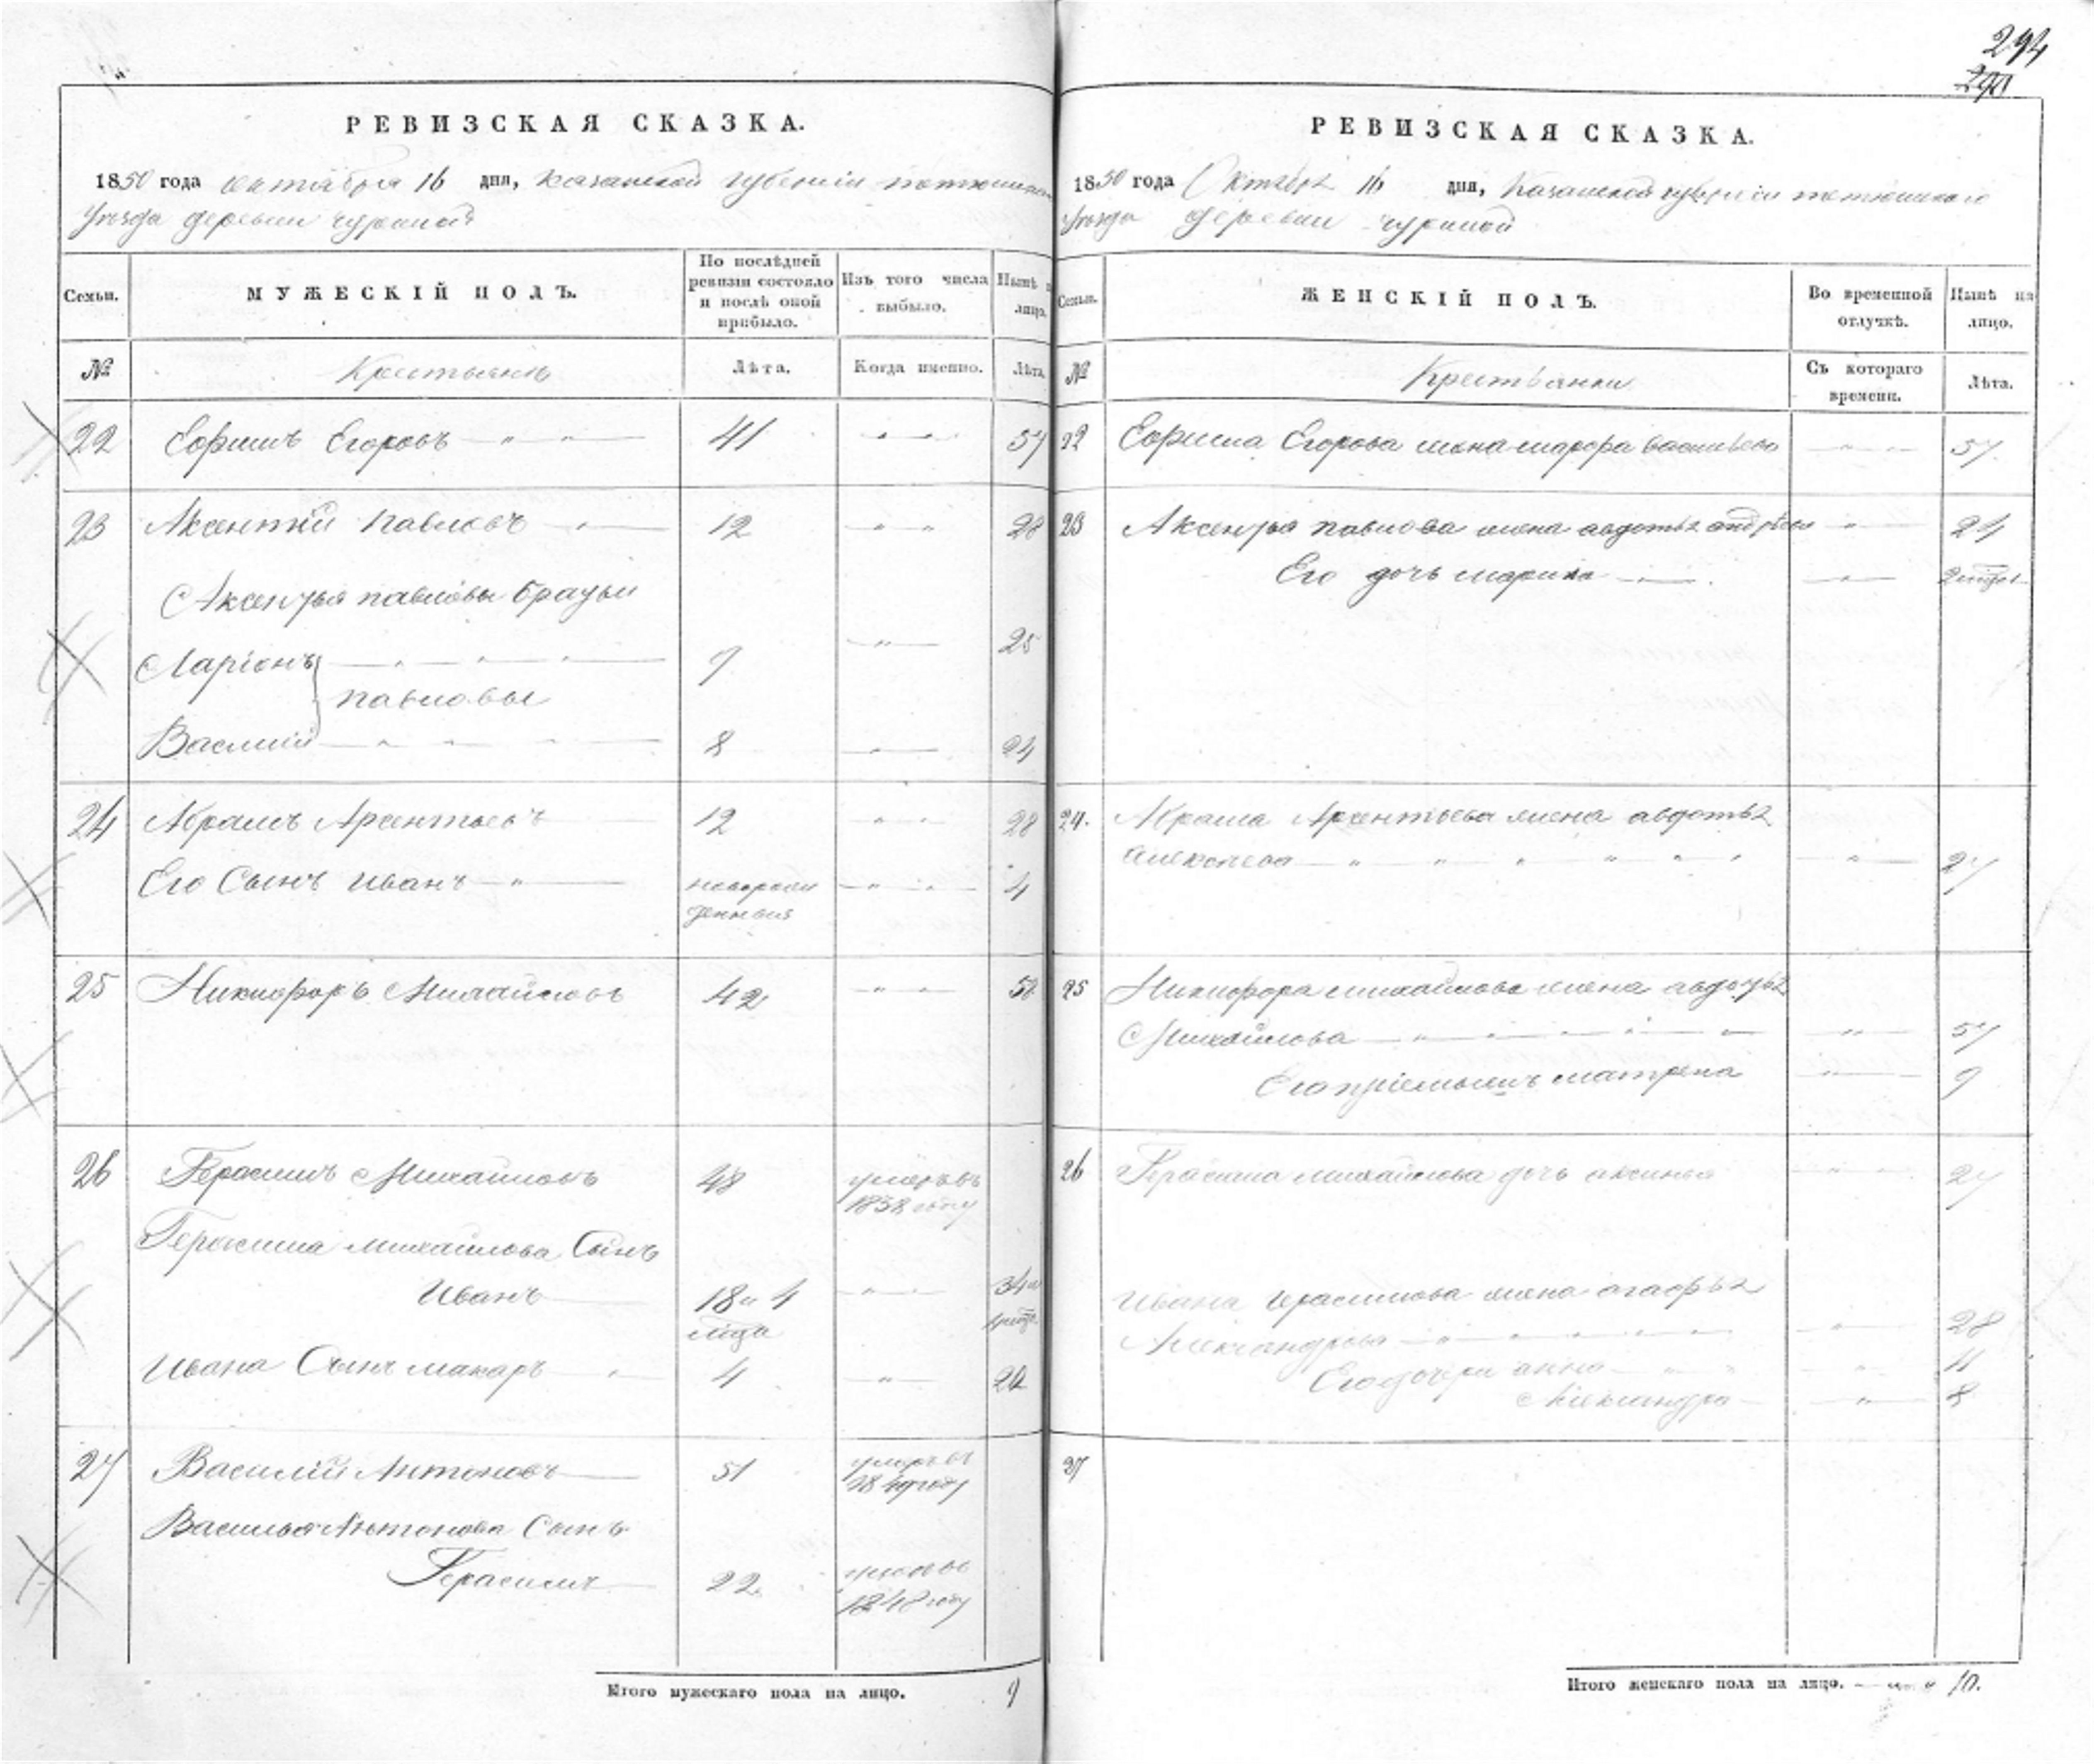 294
290
РЕВИЗСКАЯ СКАЗКА.
1850 года октября 16 дня, казанской губернии тетюшскаго
уѣзда деревни чуриной
Семьи.
МУЖЕСКІЙ ПОЛЪ.
По послѣдней ревизіи состояло и послѣ оной прибыло.
Изъ того числа выбыло.
Нынѣ на лицо.
№
Крестьяне
Лѣта.
Когда именно.
Лѣта.
22 Ефимъ Егоровъ 41 57
23 Аксентій павловъ 12 28
Аксентья павловы братьи
Ларіонъ 9 25
павловы
Василій 8 24
24 Абрамъ Арсентьевъ 12 28
Его Сынъ иванъ новорож 4
денный
25 Никифоръ Михайловъ 42 58
26 Герасимъ Михайловъ 48 умеръ въ
1838 году
Герасима михайлова Сынъ
Иванъ 18 и 4 34 и
мца
Ивана Сынъ макаръ 4 20
27 Василій Антоновъ 51 умеръ въ
1849 году
Василья Антонова Сынъ
Герасимъ 22 умеръ въ
1848 году
Итого мужескаго пола на лицо. 9
РЕВИЗСКАЯ СКАЗКА.
1850 года Октября 16 дня, Казанской губерніи тетюшскаго
уѣзда деревни чуриной
Семьи.
ЖЕНСКІЙ ПОЛЪ.
Во временной отлучкѣ.
Нынѣ на лицо.
№
Крестьянки
Съ котораго времени.
Лѣта.
22 Ефима Егорова жена марфа васильева 57
23 Аксентья павлова жена авдотья андреева 24
Его дочь марина
24. Абрама Арсентьева жена авдотья
алексеева 27
25 Никифора михайлова жена авдотья
Михайлова 57
Его пріемышъ матрена 9
26 Герасима михайлова дочь аксинья 27
Ивана герасимова жена агафья
Александрова 28
Его дочери анна 11
Александра 8
27
Итого женскаго пола на лицо. 10.